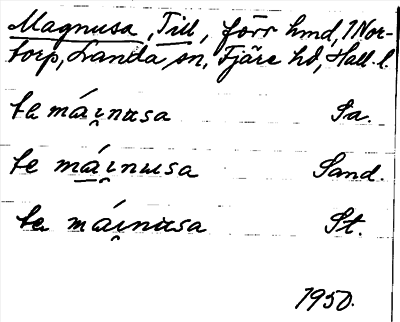 Magnusa, Till, förr hmd, 1 Nor-
torp, Landa sn, Fjäre hd, Hall. l.
te má̤i̯nusa Sa.
te mái̯nusa Sand.
te mái̯nusa St.
1950.